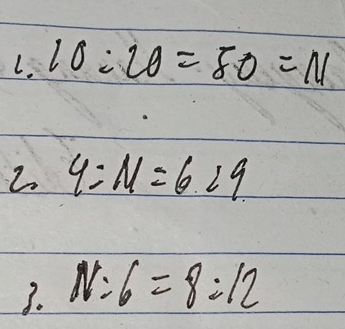 1. 10:20 = 50 = N
2. 4:N = 6:9
3. N:6 = 8:12